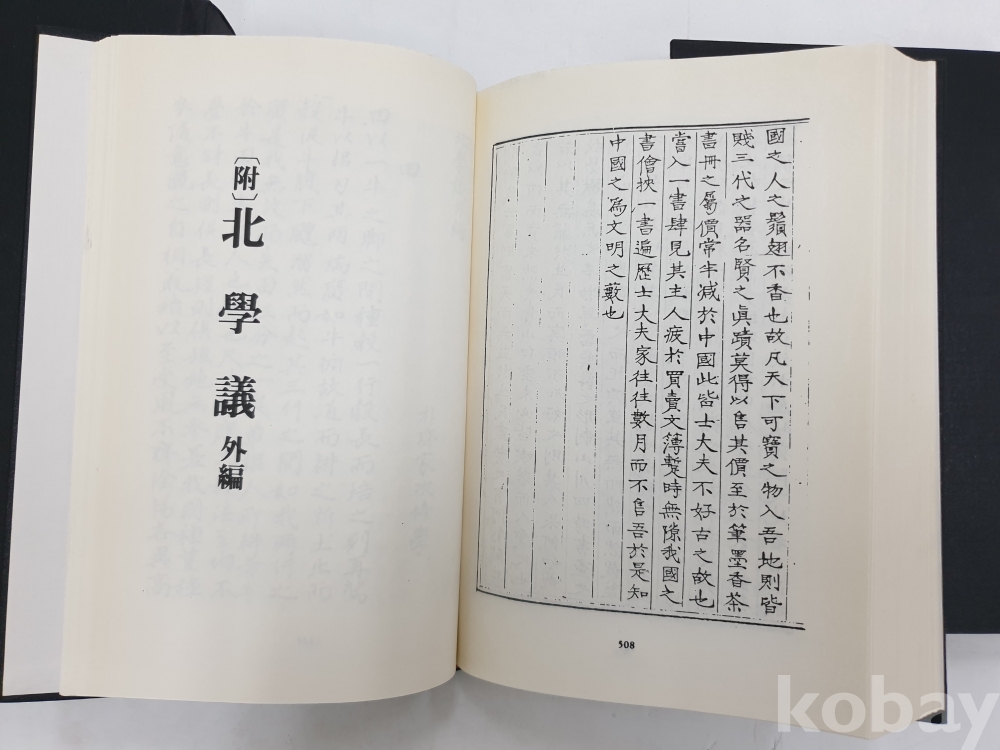 國之人之鬚翅不香也故凡天下可寶之物入吾地則皆
賤三代之器名賢之眞蹟莫得以售其價至於筆墨香茶
書冊之屬價常半减於中國此皆士大夫不好古之故也
嘗入一書肆見其主人疲於買賣文簿蹔時無隙我國之
書儈挾一書遍歷士大夫家往往數月而不售吾於是知
中國之爲文明之藪也
508
〔附〕北學議 外編
kobay